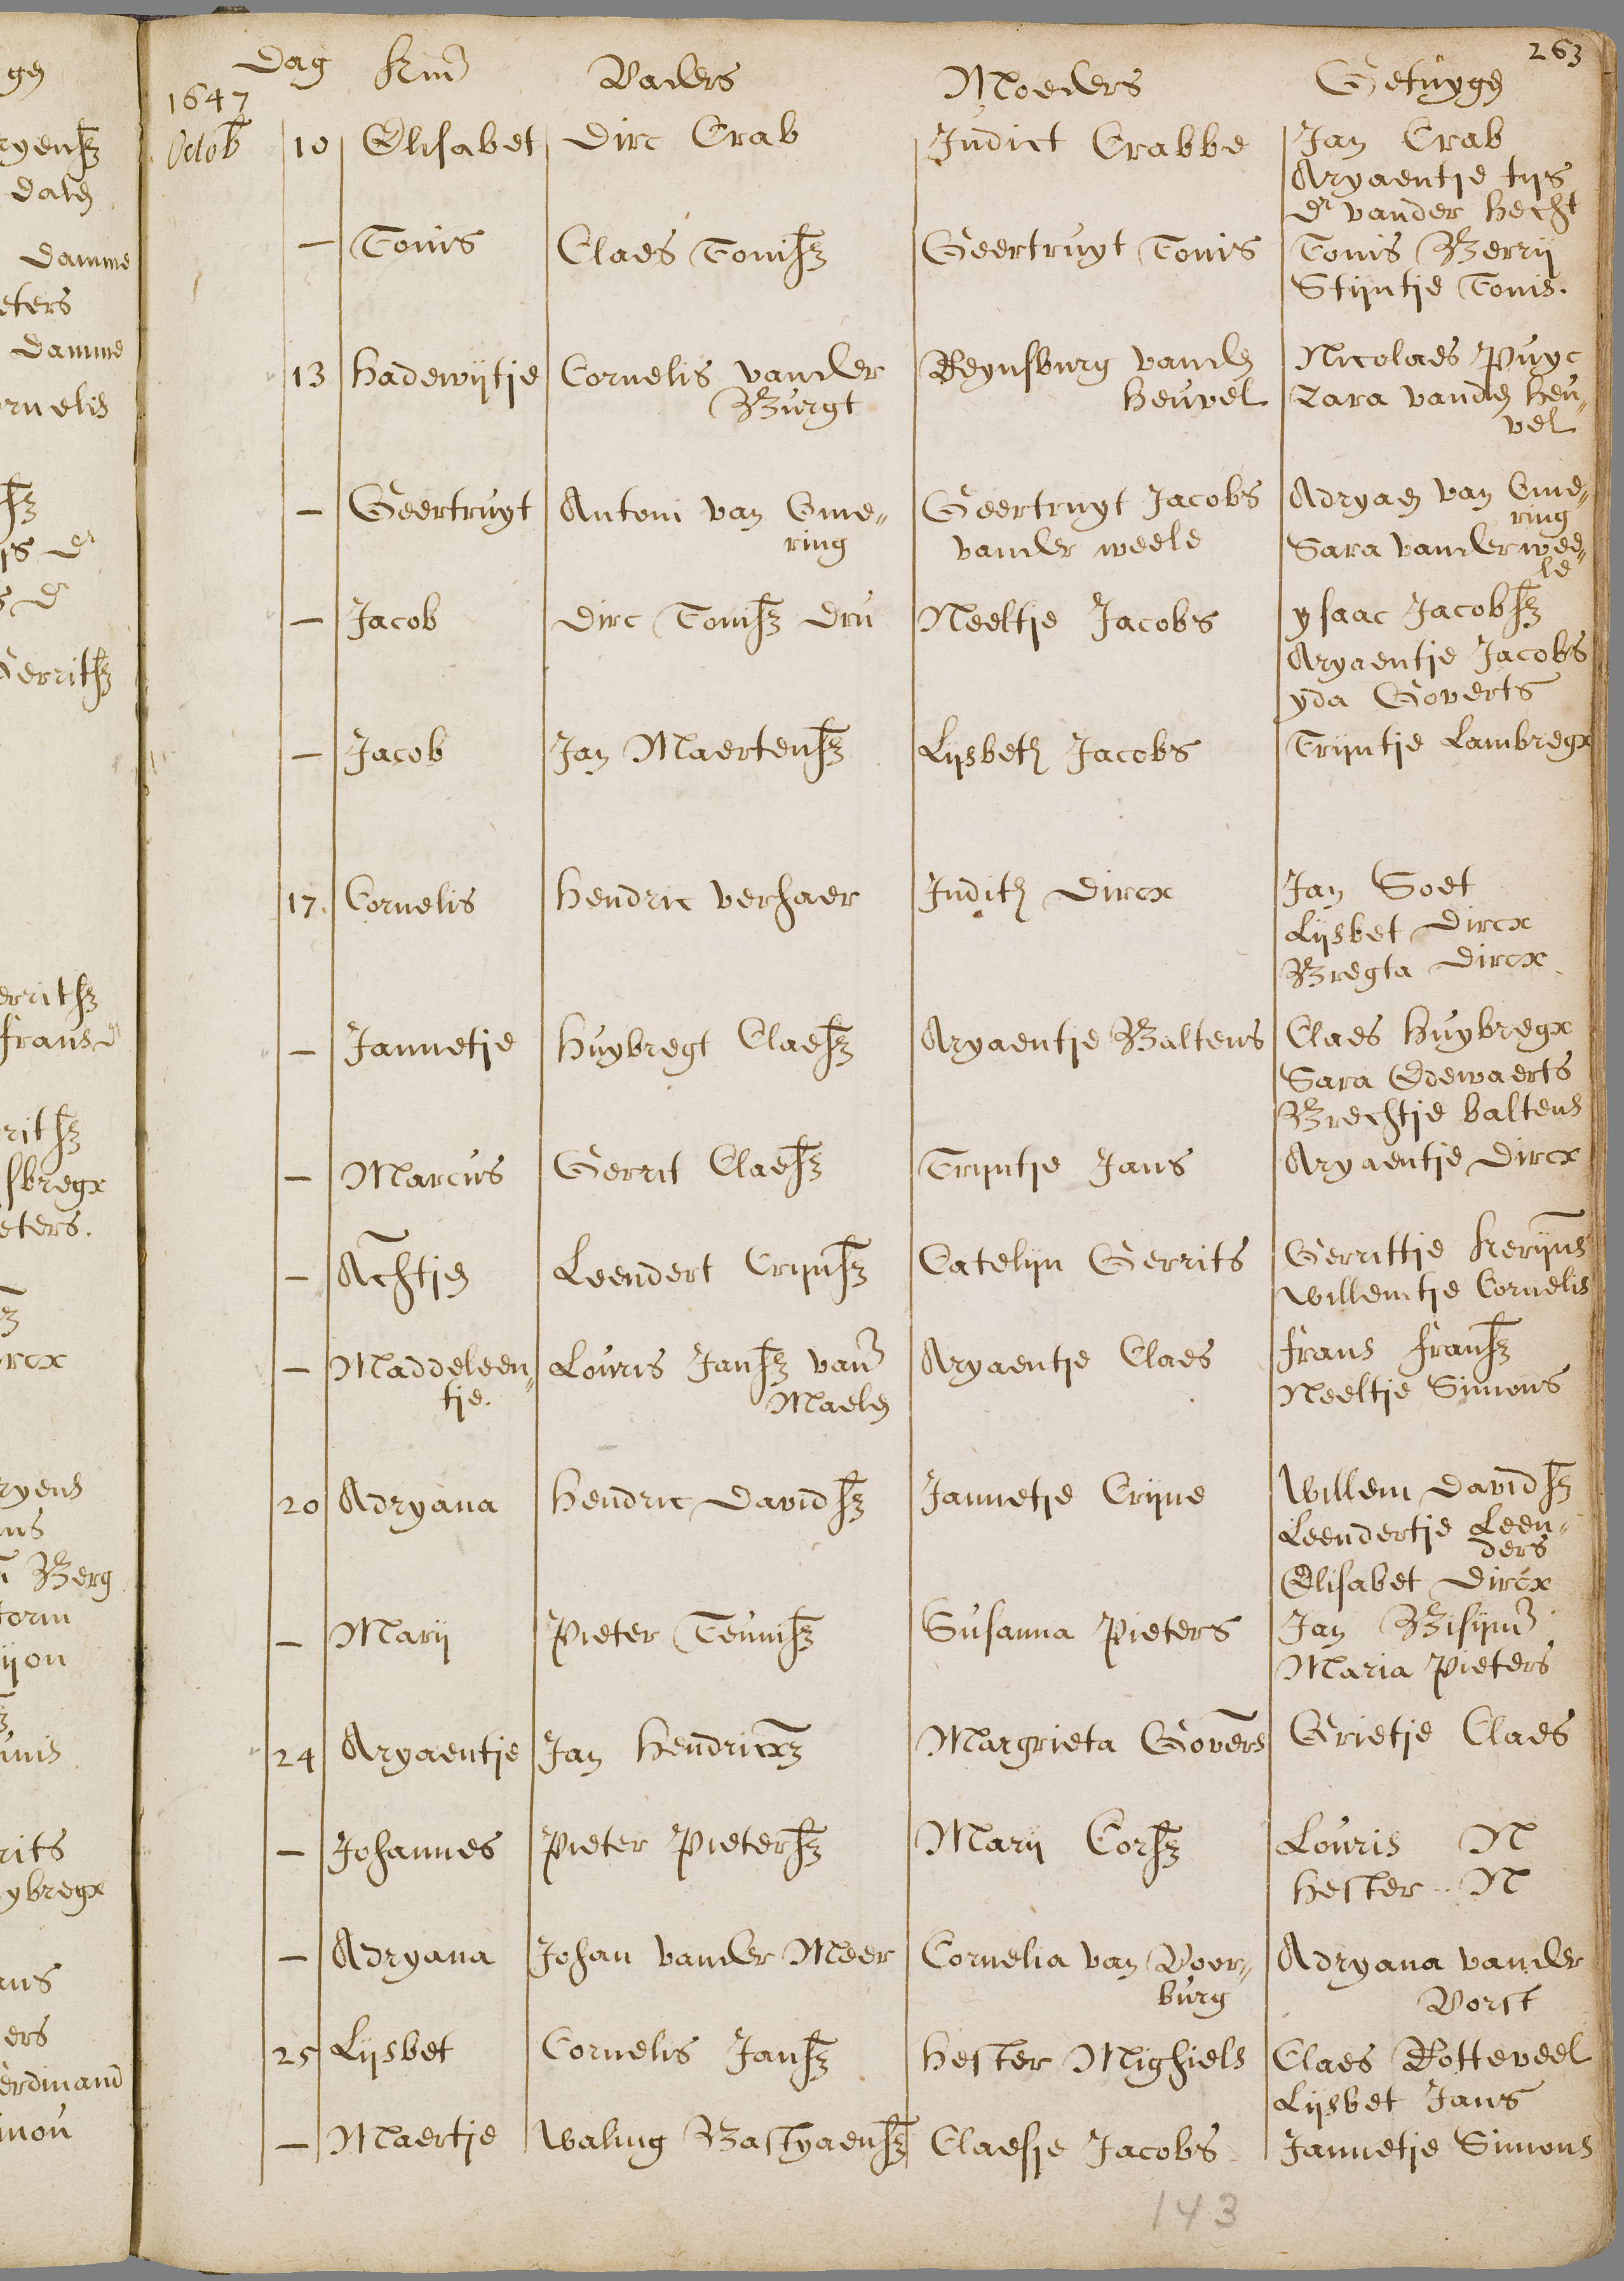 263
Dag Kind Vaders Moeders Getuygen
1647
Octob 10 Elisabet Dirc Crab Judict Crabbe Jan Crab
Aryaentje tijs
dr vander hecht
— Tonis Claes Tonisz Geertruyt Tonis Tonis Berrij
Stijntje Tonis.
13 hadewijtje Cornelis vander Reynsburg vanden Nicolaes Puyc
Burgt heuvel Zara vanden heu„
vel
— Geertruyt Antoni van Eme„ Geertruyt Jacobs Adryaen van Eme„
ring vander weele ring
Sara vander wee„
le
— Jacob Dirc Tonisz Dru Neeltje Jacobs ysaac Jacobsz
Aryaentje Jacobs
yda Goverts
— Jacob Jan Maertensz Lysbeth Jacobs Trijntje Lambregx
17. Cornelis hendric verhaer Judith Dircx Jan Soet
Lijsbet Dircx
Bregta Dircx
— Jannetje huybregt Claesz Aryaentje Baltens Claes huybregx
Sara Edewaerts
Brechtje baltens
— Marcus Gerrit Claesz Trijntje Jans Aryaentje Dircx
— Achtjen Leendert Crijnsz Catelijn Gerrits Gerrittje Kerijns
willemtje Cornelis
— Maddeleen„ Louris Jansz vand Aryaentje Claes frans fransz
tje. Maelen Neeltje Simons
20 Adryana hendric Davidsz Jannetje Crijne Willem Davidsz
Leendertje Leen„
ders
Elisabet Dircx
— Marij Pieter Teunisz Susanna Pieters Jan
Maria Pieters
24 Aryaentje Jan hendricxz Margrieta Govers Grietje Claes
— Johannes Pieter Pietersz Marij Corsz Louris N
hester N
— Adryana Johan vander Meer Cornelia van Voor„ Adryana vander
burg Vorst
25 Lijsbet Cornelis Jansz hester Mighiels Claes Rotteveel
Lijsbet Jans
— Maertje waling Bastyaensz Claesje Jacobs Jannetje Simons
143